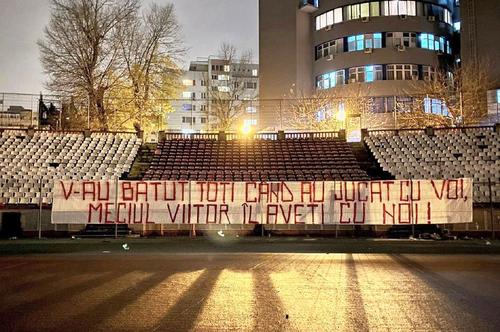 V-AU BATUT TOTI CAND AU JUCAT CU VOI,
MECIUL VIITOR ÎL AVETI CU NOI!